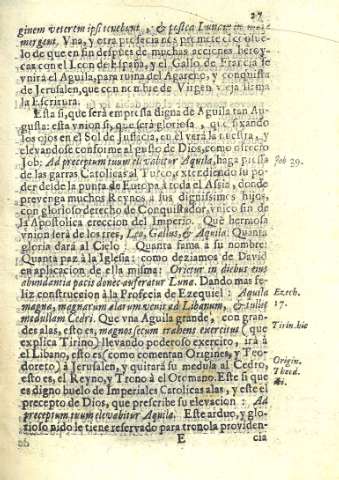 27
ginem veterem ipsi tenebunt, & postea Lunam in mare
mergent, Vna, y otra profecia nos promete el consue-
lo de que en fin despues de muchas acciones heroy-
cas con el Leon de España, y el Gallo de Francia se
vnirà el Aguila, para ruina del Agareno, y conquista
de Jerusalen, que con nombre de Virgen vieja llama
la Escritura.
Esta si, que serà empressa digna de Aguila tan Au-
gusta: esta vnion si, que serà gloriosa, que fixando
los ojos en el Sol de Justicia, en èl verà la nuestra, y
elevandose conforme al gusto de Dios, como ofrecio
Job: Ad præceptum tuum elevabitur Aquila, haga pressa
Job 39.
de las garras Catolicas al Turco, extendiendo su po-
der desde la punta de Europa à toda el Assia, donde
prevenga muchos Reynos à sus dignissimos hijos,
con glorioso derecho de Conquistador, vnico fin de
la Apostolica ereccion del Imperio. Que hermosa
vnion serà de los tres, Leo, Gallus, & Aquila: Quanta
gloria darà al Cielo: Quanta fama a su nombre:
Quanta paz à la Iglesia: como deziamos de David
en aplicacion de ella misma: Orietur in diebus eius
abundantia pacis donec auferatur Luna. Dando mas fe-
liz construccion à la Profecia de Ezequiel: Aquila
Ezech.
magna, magnarum alarum venit ad Libanum, & tulit
17.
medullam Cedri. Que vna Aguila grande, con gran-
des alas, esto es, magnos secum trahens exercitus (que
Tirin. hic
explica Tirino) llevando poderoso exercito, irà à
el Libano, esto es (como comentan Origines, y Teo-
Origin.
doreto) à Jerusalen, y quitarà su medula al Cedro,
Theod.
esto es, el Reyno, y Trono à el Otomano. Este si que
es digno buelo de Imperiales Catolicas alas, y este el
precepto de Dios, que prescribe su elevacion: Ad
præceptum tuum elevabitur Aquila. Este arduo, y glo-
rioso nido le tiene reservado para trono la providen-
E cia